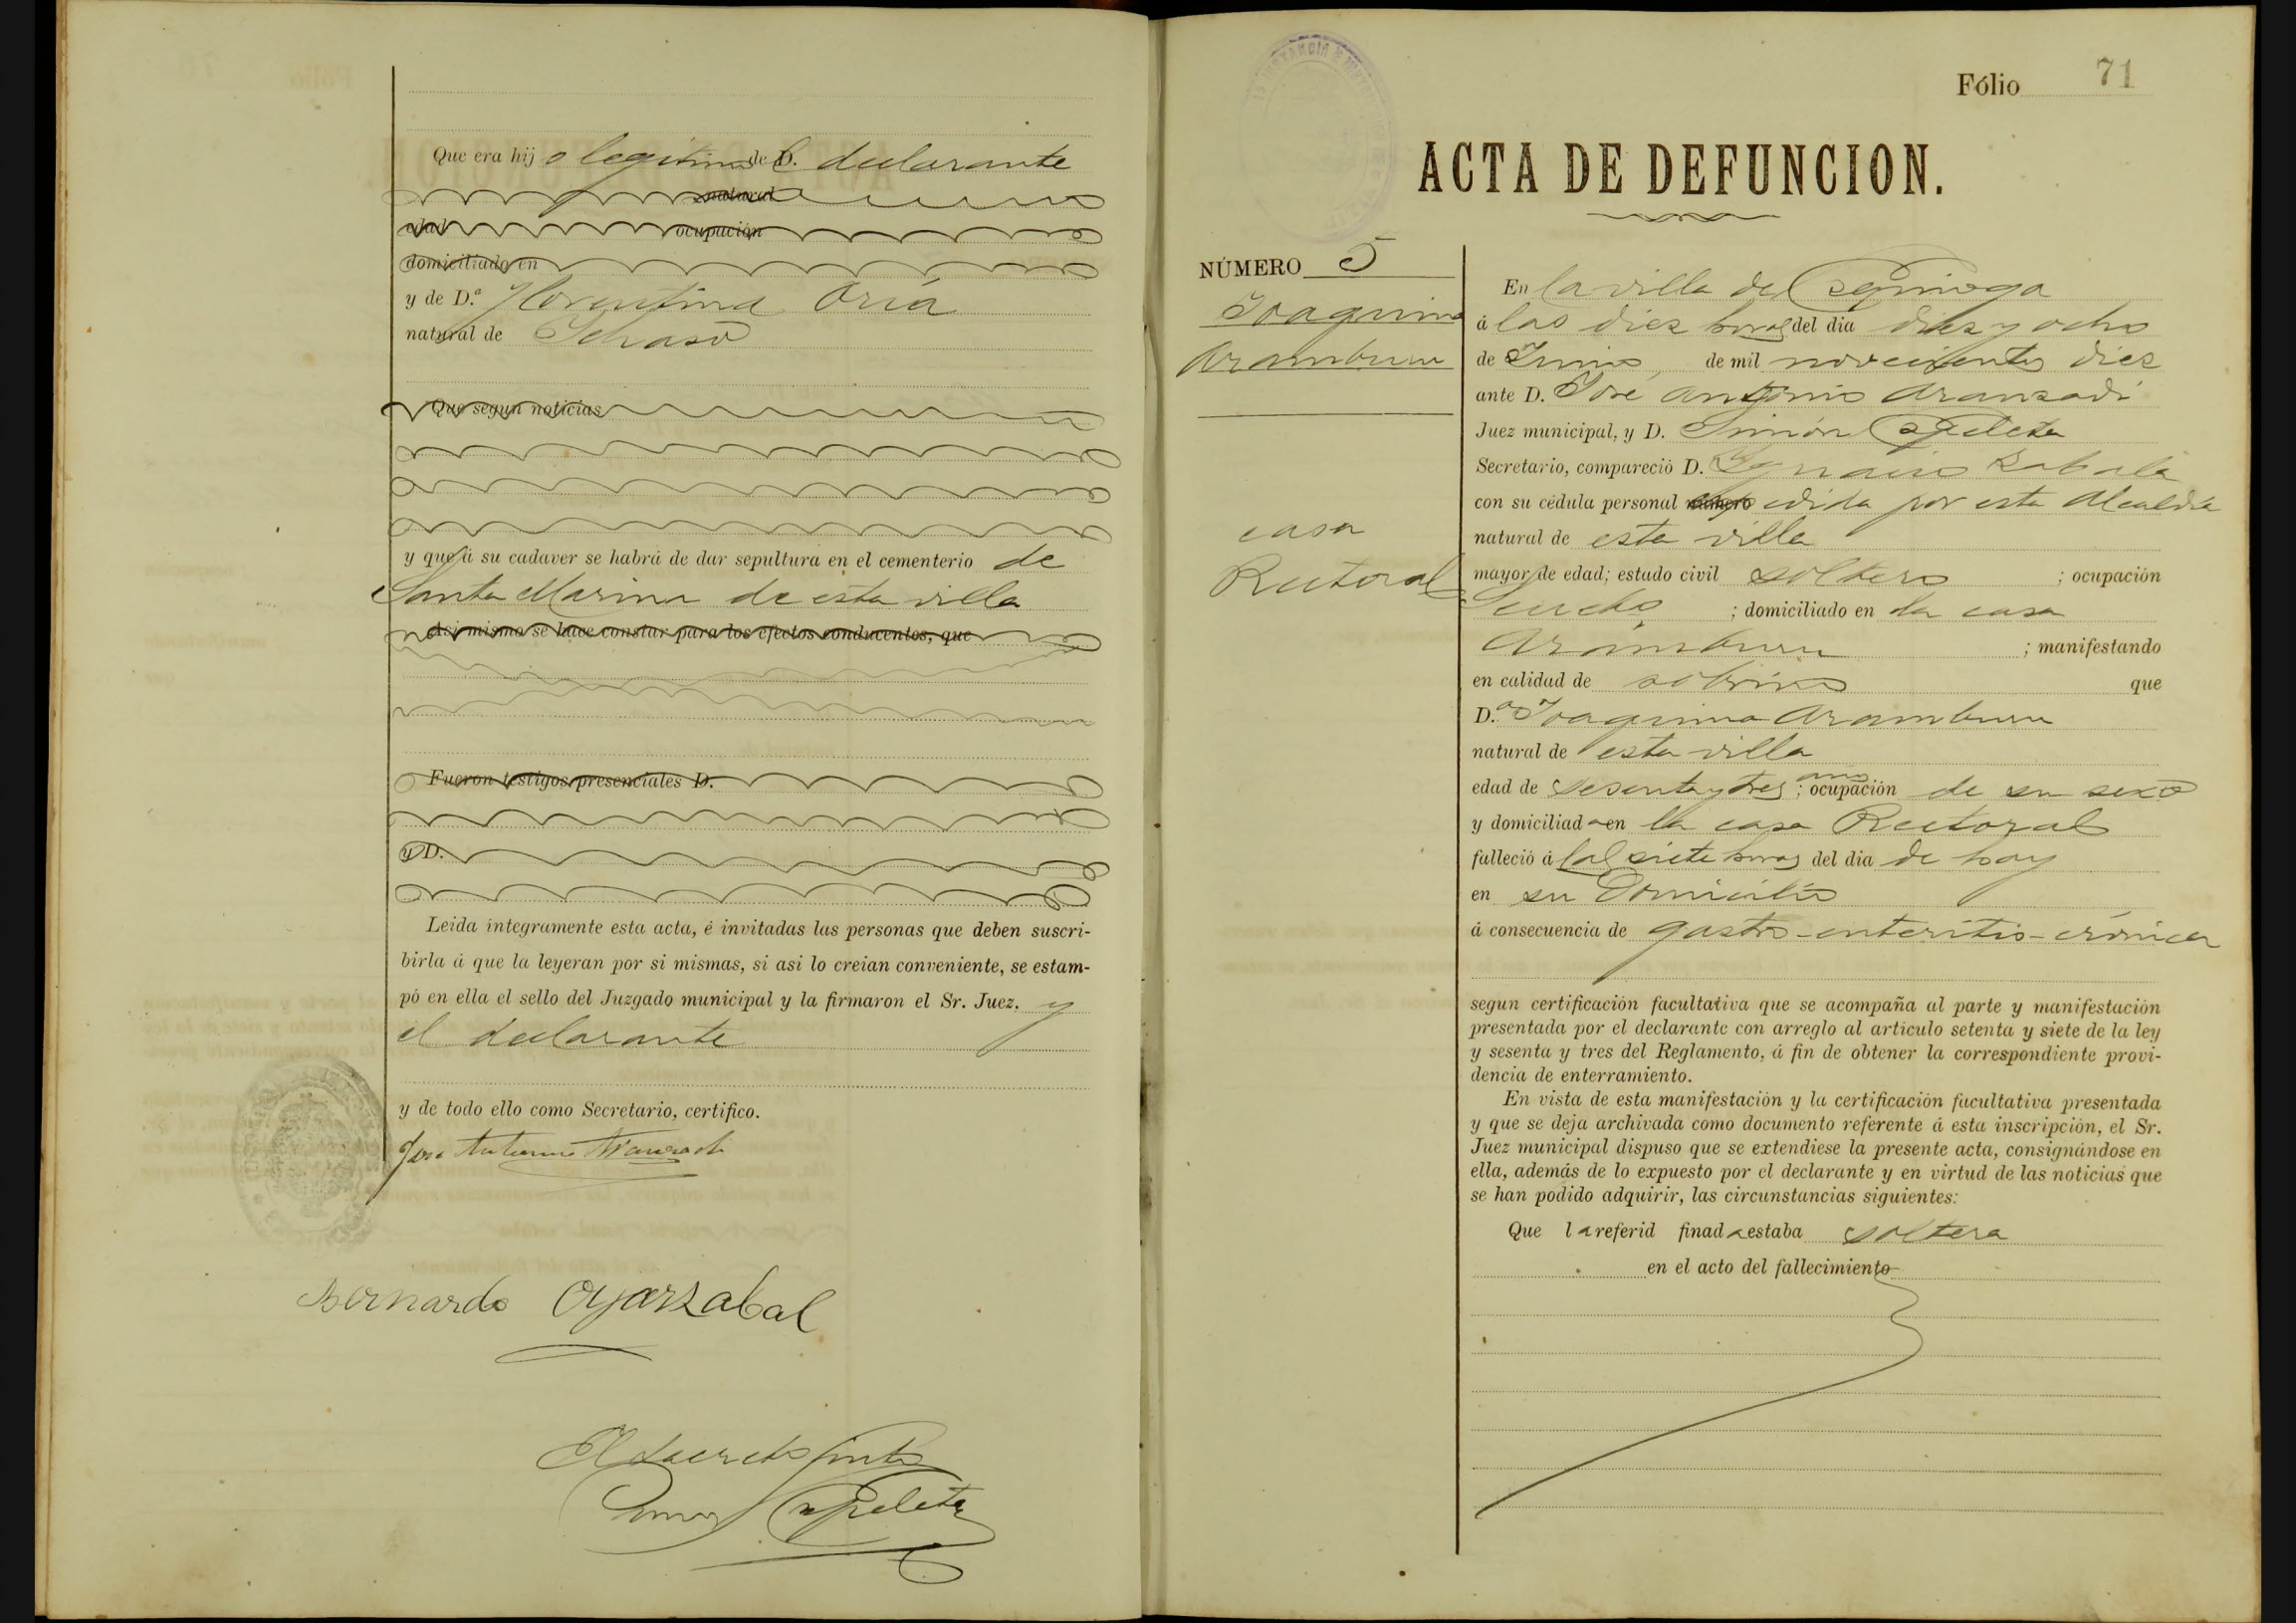 Que era hijo legitimo del declarante
natural
edad ocupación
domiciliado en
y de D.ª Florentina Oria
natural de Ichaso
Que segun noticias
y que á su cadaver se habrá de dar sepultura en el cementerio de
Santa Marina de esta villa
Asi mismo se hace constar para los efectos conducentes, que
Fueron testigos presenciales D.
y D.
Leida integramente esta acta, é invitadas las personas que deben suscri-
birla á que la leyeran por si mismas, si asi lo creian conveniente, se estam-
pó en ella el sello del Juzgado municipal y la firmaron el Sr. Juez. y
el declarante
y de todo ello como Secretario, certifico.
José Antonio Aranzadi
Bernardo Oyarzabal
El Secreto
Simon Apeleta
Fólio 71
ACTA DE DEFUNCION.
NÚMERO 5
Joaquina
Aramburu
casa
Rectoral
En la villa de
á las diez horas del dia diez y ocho
de Junio, de mil novecientos diez
ante D. José Antonio Aranzadi
Juez municipal, y D. Simón Apeleta
Secretario, compareció D. Ygnacio Zabala
con su cédula personal número expedida por esta Alcaldia
natural de esta villa
mayor de edad; estado civil soltero ; ocupación
; domiciliado en la casa
Aramburu ; manifestando
en calidad de sobrino que
D.ª Joaquina Aramburu
natural de esta villa
edad de sesenta y tres años ; ocupación de su sexo
y domiciliada en la casa Rectoral
falleció á las siete horas del dia de hoy
en su Domicilio
á consecuencia de gastro-enteritis-crónica
segun certificación facultativa que se acompaña al parte y manifestación
presentada por el declarante con arreglo al articulo setenta y siete de la ley
y sesenta y tres del Reglamento, á fin de obtener la correspondiente provi-
dencia de enterramiento.
En vista de esta manifestación y la certificación facultativa presentada
y que se deja archivada como documento referente á esta inscripción, el Sr.
Juez municipal dispuso que se extendiese la presente acta, consignándose en
ella, además de lo expuesto por el declarante y en virtud de las noticias que
se han podido adquirir, las circunstancias siguientes:
Que la referid finada estaba soltera
en el acto del fallecimiento